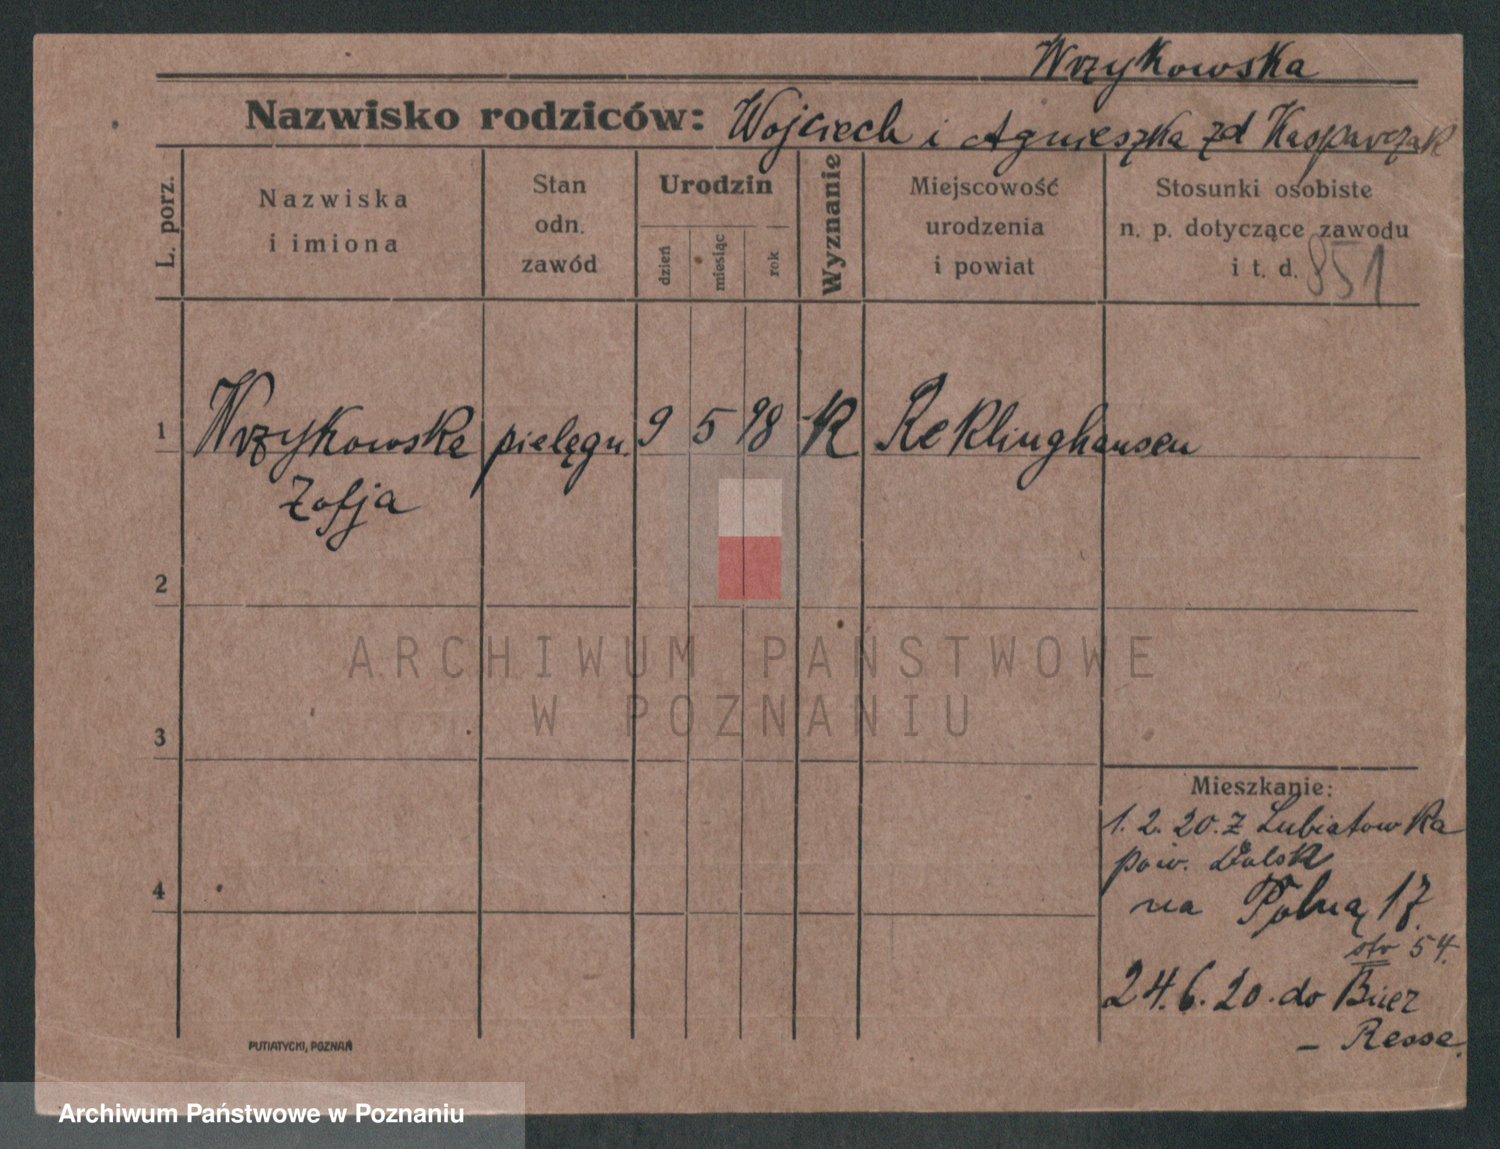 Wrzykowska
Nazwisko rodziców: Wojciech i Agnieszka zd Kasparczak
L. porz.
Nazwiska
i imiona
Stan
odn.
zawód
Urodzin
dzień
miesiąc
rok
Wyznanie
Miejscowość
urodzenia
i powiat
Stosunki osobiste
n. p. dotyczące zawodu
i t. d.
851
1 Wrzykowska pielęgn. 9 5 98 K Reklinghausen
Zofja
2
3
4
Mieszkanie:
1. 2. 20. z Lubiatowka
pow. Dolsk
na Polną 17.
str 54.
24. 6. 20. do Buer
- Resse.
PUTIATYCKI, POZNAŃ
ARCHIWUM PAŃSTWOWE
W POZNANIU
Archiwum Państwowe w Poznaniu